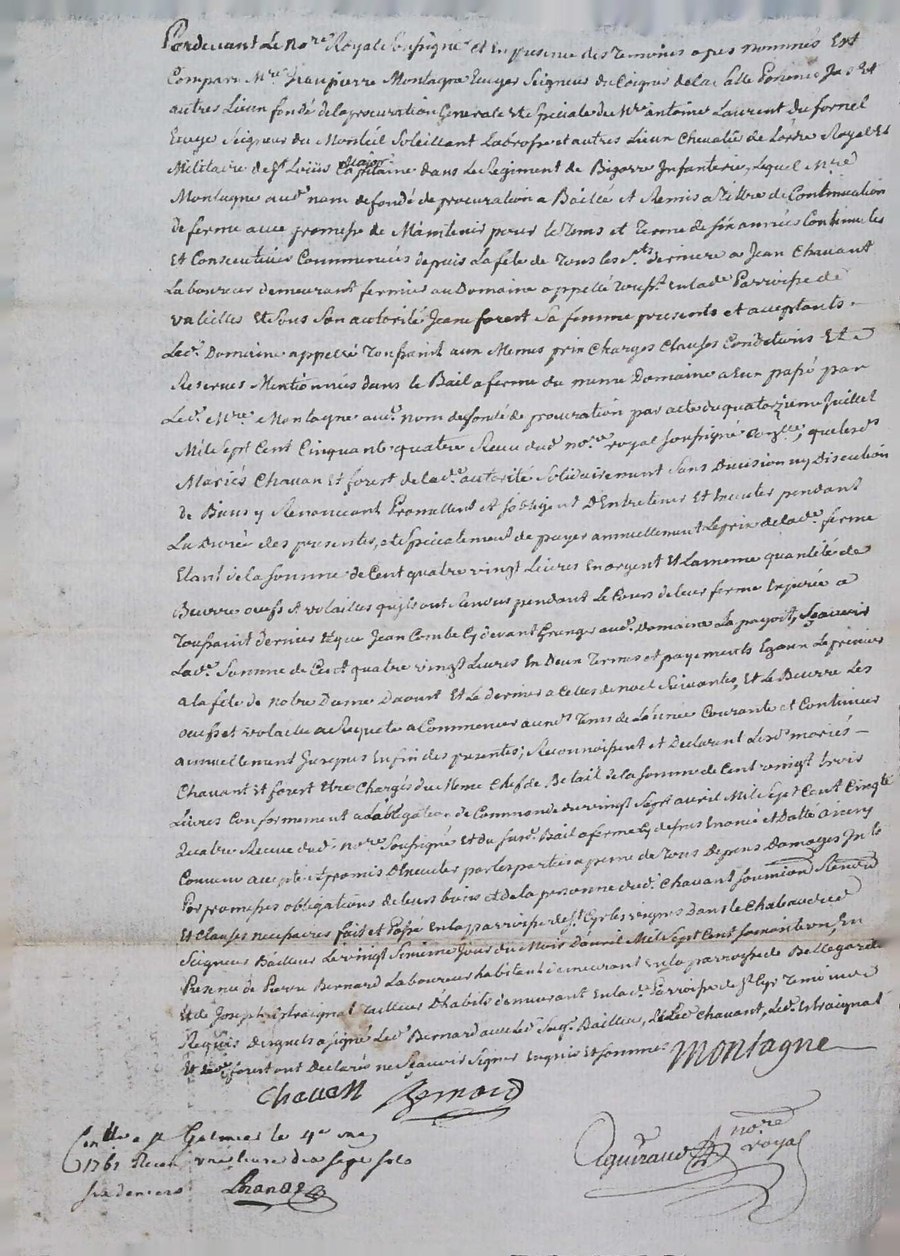 Pardevant Le no.re Royal soussigné et En presence des Temoins apres nommés Est
Comparu M.re Jean pierre Montagne Ecuyer Seigneur de la Salle
autres Lieux fondé de la procuration Generale et speciale du M.re antoine Laurent Du fornel
Ecuye Seigneur du Monteil Soleillant Labrosse et autres Lieux Chevalie de Lordre Royal Et
Militaire de S.t Loüis Major Capitaine dans Le Regiment de Bigorre Infanterie, Lequel M.re
Montagne aud. nom de fondé de procuration a Baillé et Remis a Tiltre de Continuation
de ferme avec promesse de Maintenir pour le Tems et Terme de six années Continuelles
Et Consecutives Commencées depuis La fête de Tous les S.ts derniere a Jean Chavant
Laboureur demeurant fermier au Domaine appellé Touss.t En lad. Parroisse de
valeilles Et sous son autorité Jeane forest sa femme presents et acceptants
Led. Domaine appellé Toussaint aux Memes prix Charges Clauses Conditions Et
Reserves Mentionnées dans le Bail a ferme du meme Domaine a Eux passé par
Led. M.re Montagne aud. nom de fondé de procuration par acte du quatorzieme Juillet
Mil Sept Cent Cinquante quatre Reçu dud. no.re royal soussigné que lesd.
Mariés Chavan Et forest de lad. autorité Solidairement Sans Division ny Discution
de Biens y Renoncant Promettent et s'obligent D'Entretenir Et Executer pendant
La Durée des presentes, et Specialement de payer annuellement Le prix de lad. ferme
Etant de la somme de Cent quatre vingt Livres En argent Et La meme quantité de
Beurre oeufs et volailes qu'ils ont Rendus pendant Le Cours de leur ferme Expirée a
Toussaint dernier Et que Jean Combe Cy devant Granger aud. Domaine La payoit, Sçavoir
Lad. Somme de Cent quatre vingt Livres En Deux Termes et payements Egaux Le premier
a la fête de notre Dame Daoust Et Le dernier a Celles de noel Suivantes, Et Le Beurre Les
oeufs et volailes a Requete a Commencer auxd. Tems de L'année Courante et Continuer
annuellement Jusques En fin des presentes; Reconnoissent et Declarent Lesd. mariés
Chavant Et forest Etre Chargés du Meme Chef de Betail de la somme de Cent vingt trois
Livres Conformement a L'obligation de Commande du vingt Sept avril Mil Sept Cent Cinq.te
Quatre Recue dud. no.re Soussigné Et du susd. Bail a ferme Cy dessus Enoncé et Datté ainsy
Convenu accepté et promis D'Executer par les parties a peine de Tous Depens Damages In.ts
Par promesses obligations de leurs biens et de la personne dud. Chavant soumissions Renon.
Et Clauses necessaires fait et Passé En la parroisse de S.t Cyr les vignes Dans le Chateau dud.
Seigneur Bailleur Le vingt Jour du Mois Davril Mil Sept Cent soixante un, En
Presence de Pierre Bernard Laboureur habitant demeurant En la parroisse de Bellegarde
Et de Joseph Tailleur D'habits demeurant En lad. Parroisse de S.t Cyr Temoins
Requis Desquels a signé Led. Bernard avec Led. Seig.r Bailleur, Et Led. Chavant, Led.
Et lad. forest ont Declaré ne Sçavoir Signer Enquis Et Sommés Montagne
Chavan Bernard
Con.lle a S.t Galmier le 4e may
1761 Recu une livre dix sept sols
six deniers
Aguiraud no.re royal